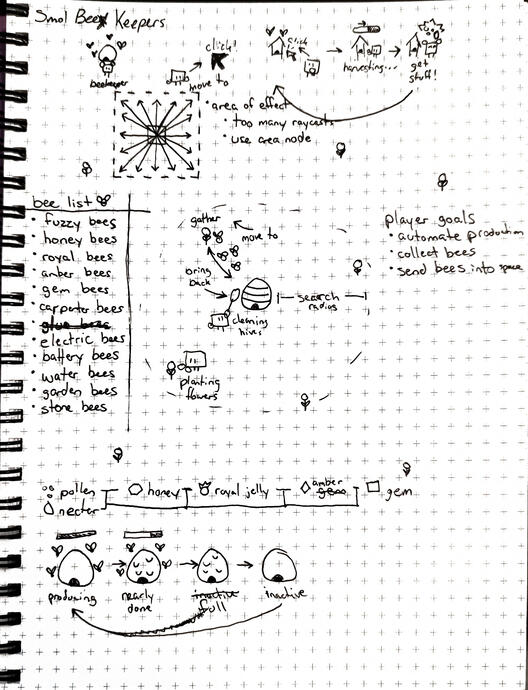 Smol Bee Keepers
beekeeper
click!
move to
click
harvesting...
get
stuff!
• area of effect
• too many raycasts
• use area node
bee list
• fuzzy bees
• honey bees
• royal bees
• amber bees
• gem bees
• carpenter bees
• glue bees
• electric bees
• battery bees
• water bees
• garden bees
• stone bees
gather
move to
bring
back
search
radius
cleaning
hives
planting
flowers
player goals
• automate production
• collect bees
• send bees into space
pollen
necter
honey
royal jelly
amber
gem
producing
nearly
done
inactive
full
inactive